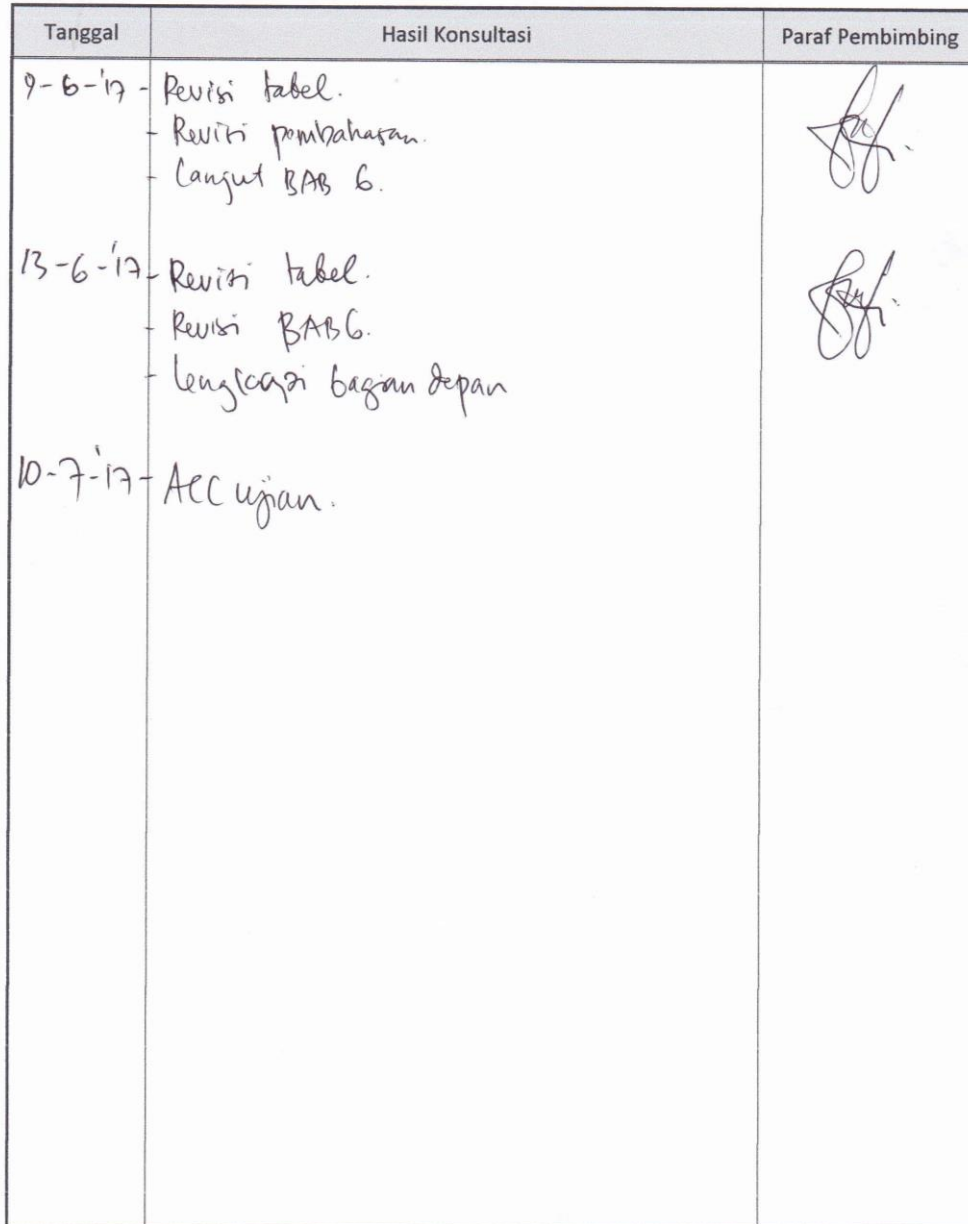 Tanggal Hasil Konsultasi Paraf Pembimbing
9-6-'17 - Revisi tabel.
- Revisi pembahasan.
- Lanjut BAB 6.
13-6-'17 - Revisi tabel.
- Revisi BAB 6.
- Lengkapi bagian depan
10-7-'17 - ACC ujian.